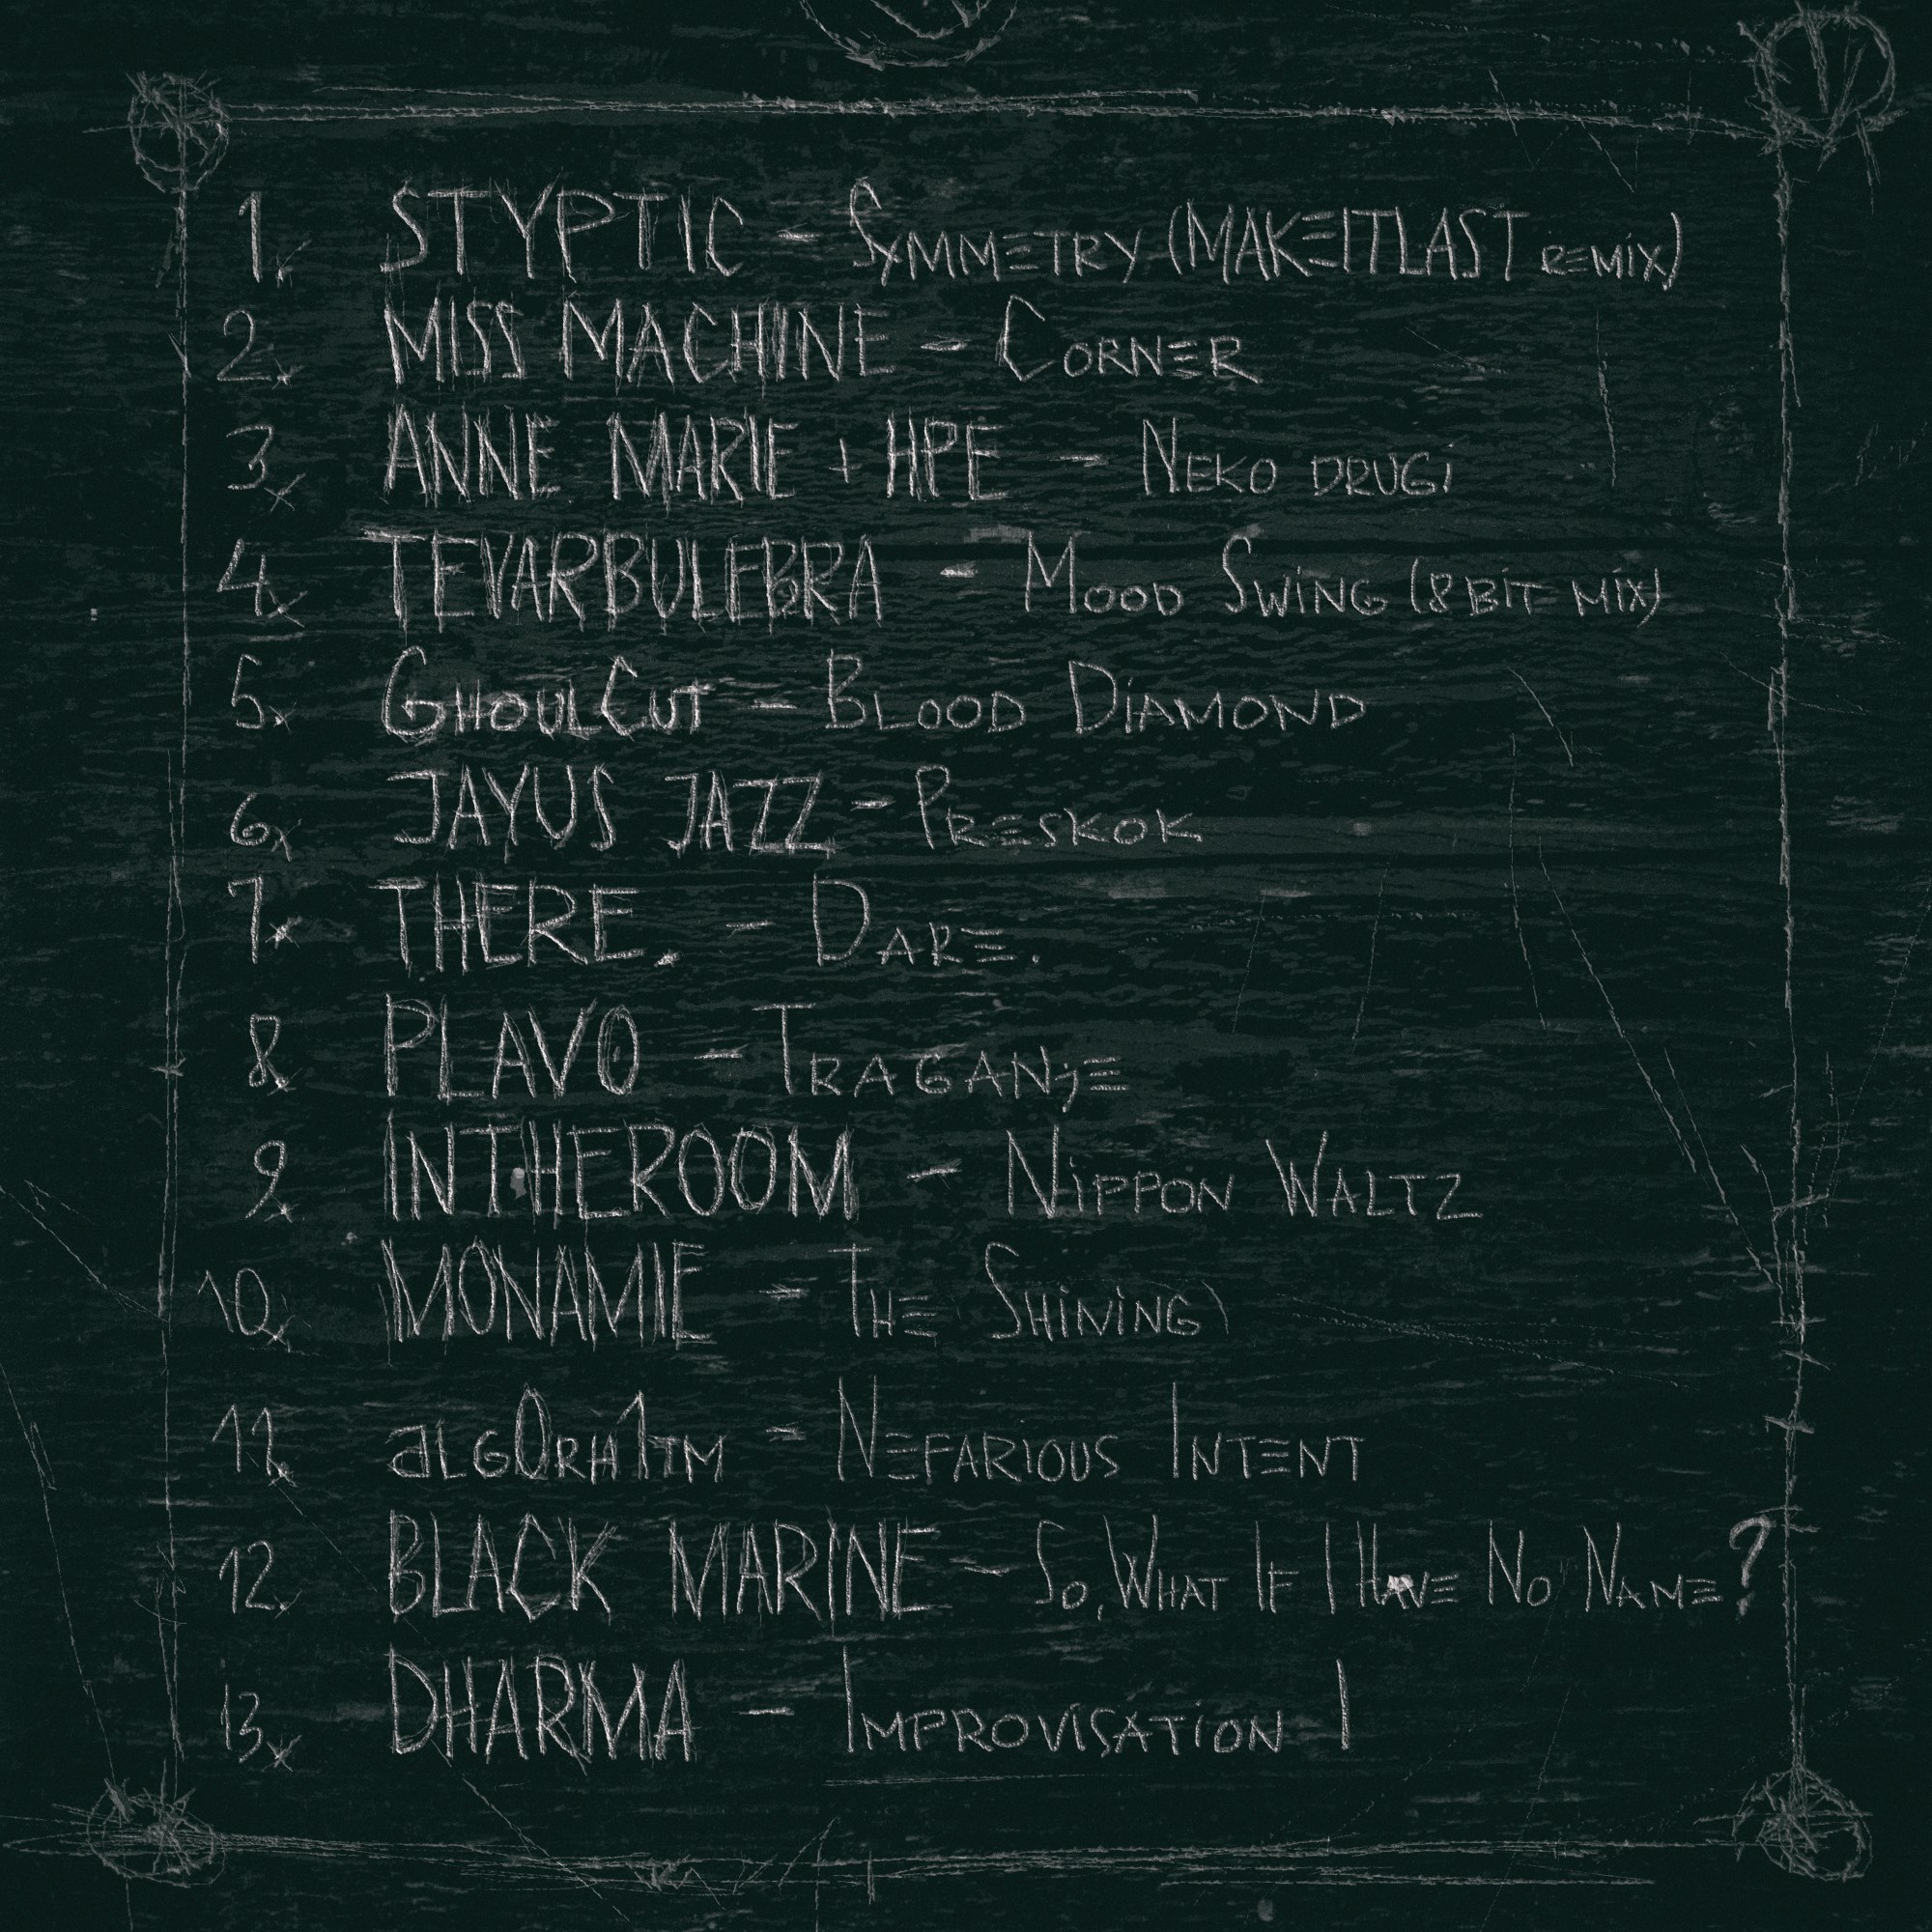 1. STYPTIC - SYMMETRY (MAKEITLAST REMiX)
2. MISS MACHINE - CORNER
3. ANNE MARIE + HPE - NEKO DRUGi
4. TEVARBULEBRA - MOOD SWiNG (8BiT MiX)
5. GHOULCUT - BLOOD DiAMOND
6. JAYUS JAZZ - PRESKOK
7. THERE. - DARE.
8. PLAVO - TRAGANjE
9. INTHEROOM - NiPPON WALTZ
10. MONAMIE - THE SHiNiNG
11. aLG0RH1TM - NEFARIOUS INTENT
12. BLACK MARINE - SO, WHAT IF I HAVE NO NAME?
13. DHARMA - IMPROViSATiON I